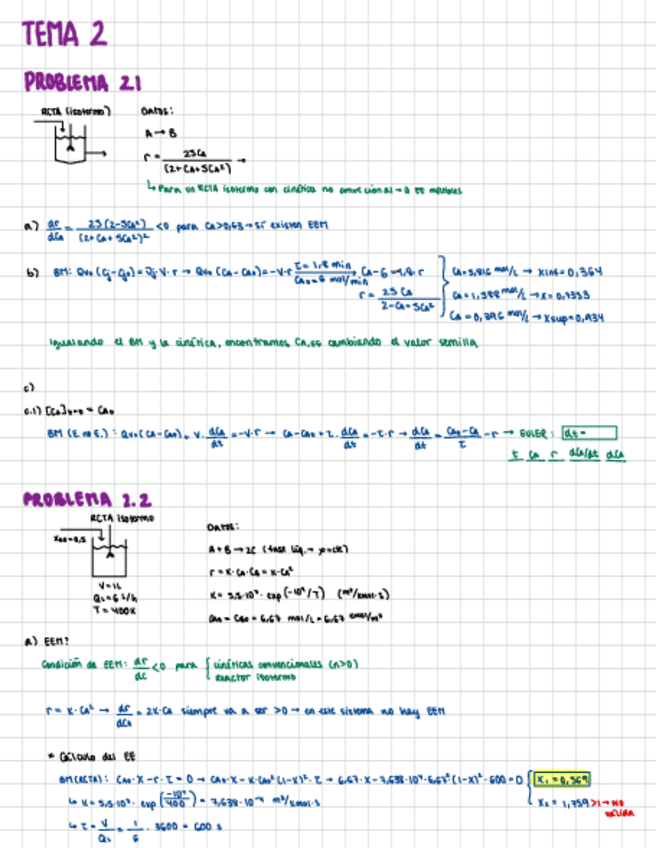 TEMA 2
PROBLEMA 2.1
RCTA (isotermo)
DATOS:
A → B
r = 25CA / (2+CA+5CA²) →
↳ Para un RCTA isotermo con cinética no convencional → EE múltiples
a) dr/dCA = 25(2-5CA²) / (2+CA+5CA²)² <0 para CA>0,63 → sí existen EEM
b) BM: Qv0 (Cj-Cj0) = νj·V·r → Qv0 (CA-CA0) = -V·r
τ = 1,8 min
CA0 = 6 mol/min
CA-6 = -1,8·r
r = 25 CA / 2-CA+5CA²
CA = 3,816 mol/L → Xinf = 0,364
CA = 1,588 mol/L → X =
CA = 0,396 mol/L → Xsup = 0,934
Igualando el BM y la cinética, encontramos CA,EE cambiando el valor semilla
c)
c.1) [CA]t=0 = CA0
BM (E. no E.): Qv0 (CA-CA0) + V · dCA/dt = -V·r → CA-CA0 + τ · dCA/dt = -τ·r → dCA/dt = CA0-CA / τ - r → EULER: dt =
t CA r dCA/dt dCA
PROBLEMA 2.2
RCTA isotermo
V = 1L
QL = 6 L/h
T = 400K
DATOS:
A + B → 2C (fase líq. → ρ=cte)
r = K·CA·CB = K·CA²
K = 5,5·10⁷ · exp(-10⁴/T) (m³/kmol·s)
CA0 = CB0 = 6,67 mol/L = 6,67 kmol/m³
a) EEM?
Condición de EEM: dr/dc <0 para { cinéticas convencionales (n>0)
reactor isotermo
r = K·CA² → dr/dCA = 2K·CA siempre va a ser >0 → en este sistema no hay EEM
* Cálculo del EE
BM(RCTA): CA0·X - r·τ = 0 → CA0·X - K·CA0²(1-X)²·τ → 6,67·X - 7,638·10⁻⁴·6,67²(1-X)²·600 = 0 { X₁ = 0,569
↳ K = 5,5·10⁷ · exp(-10⁴/400) = 7,638·10⁻⁴ m³/kmol·s
X₂ = 1,759 >1 → NO
válida
↳ τ = V/QL = 1/6 · 3600 = 600 s